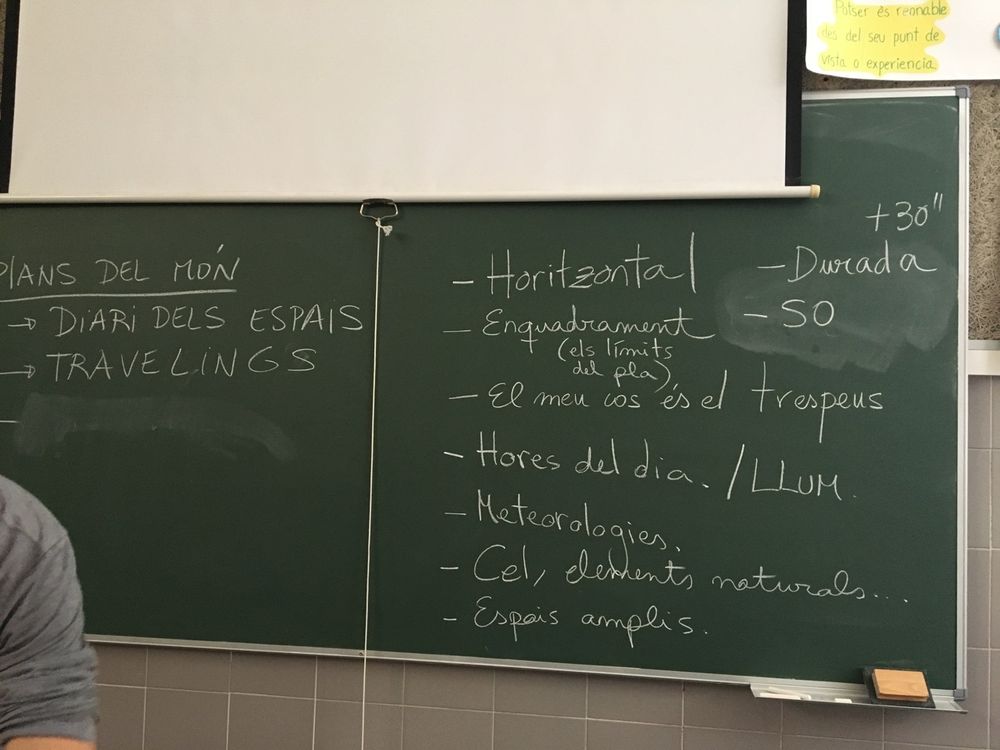 Potser és reonable
des del seu punt de
vista o experiencia
PLANS DEL MÓN
→ DIARI DELS ESPAIS
→ TRAVELINGS
–
– Horitzontal
– Enquadrament
(els límits
del pla)
– El meu cos és el trespeus
– Hores del dia. / LLUM.
– Meteorologies.
– Cel, elements naturals...
– Espais amplis.
+30"
– Durada
– SO